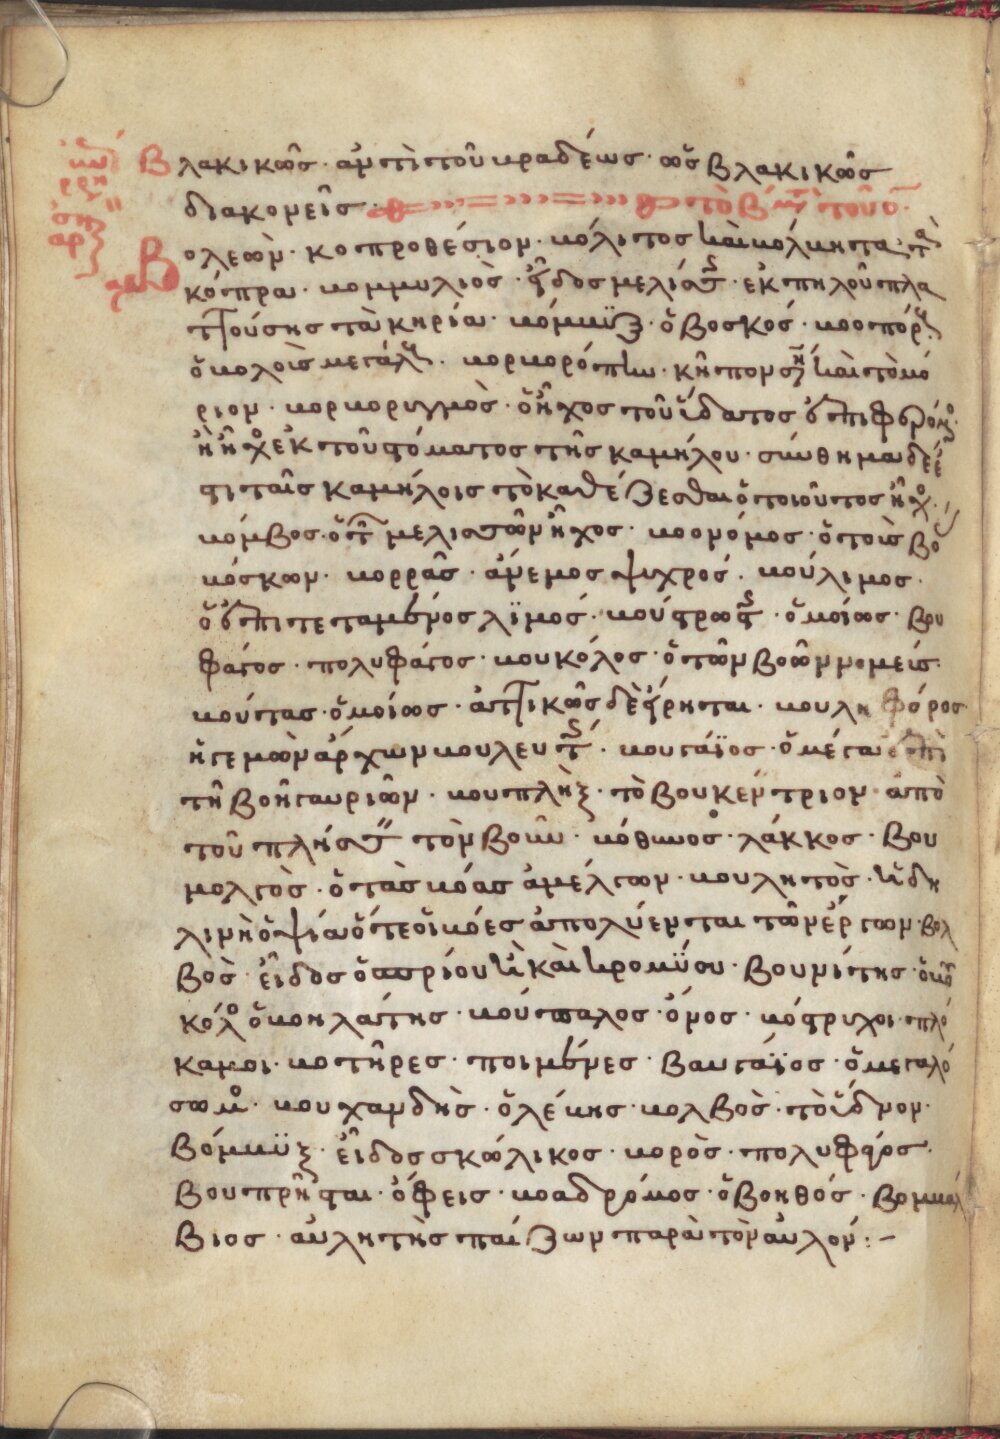 Βλακικῶς · ἀντὶ τοῦ βραδέως · ὡς βλακικῶς
διακονεῖς · τὸ β μετὰ τοῦ ο ·
Βολεὼν · κοπροθέσιον · βόλιτος καὶ βόλβιτα · τὰ
κόπρα · βομβυλιὸς · εἶδος μελίσσης · ἐκ πηλοῦ πλα
ττούσης τὰ κηρία · βόμβυξ · ὁ βοσκός · βοοπόρος
ὀβολοῖς μεγάλοις · βορβορόπη · κῆπον καὶ τὸ μό
ριον · βορβορυγμὸς · ὁ ἦχος τοῦ ὕδατος
ἢ ἦχος ἐκ τοῦ στόματος τῆς καμήλου · σύνθημα δέ ἐ
στι ταῖς καμήλοις τὸ καθέζεσθαι ὁ τοιοῦτος ἦχος ·
βόμβος · ὁ τῶν μελισσῶν ἦχος · βοονόμος · ὁ τοὺς βό
βόσκων · βορρᾶς · ἄνεμος ψυχρός · βούλιμος ·
ὁ ἐπιτεταμένος λιμός · βούστρωστις · ὁμοίως · βου
φάγος · πολυφάγος · βουκόλος · ὁ τῶν βοῶν νομεύς ·
βούτας · ὁμοίως · ἀττικῶς δὲ εἴρηται · βουληφόρος
ἡγεμὼν ἄρχων βουλευτής · βουγάϊος · ὁ μέγα ἐπὶ
τῇ βοῇ γαυριῶν · βουπλὴξ · τὸ βουκέντριον · ἀπὸ
τοῦ πλήσσειν τὸν βοῦν · βόθυνος · λάκκος · βου
μολγὸς · ὁ τὰς βόας ἀμέλγων · βουλητὸς · ἡ δη
λινὴ ὀψία ὅτε οἱ βόες ἀπολύενται τῶν ἔργων · βολ
βὸς · εἶδος ὀσπρίου ἢ καὶ κρομύου · βουμίτης
κόλος ὁ βοηλάτης · βούπαλος · ὄνος · βόστρυχοι · πλό
καμοι · βοτῆρες · ποιμένες · βαυγάϊος · ὁ μεγαλό
σωμος · βουχανδὴς · ὁ λέβης · βολβὸς · τὸ ὕδνον ·
βόμβυξ · εἶδος σκώληκος · βορὸς · πολυφάγος ·
βουπρήσται · ὄφεις · βοαδρόμος · ὁ βοηθός · βομβαύ
βιος · αὐλητὴς παίζων παρὰ τὸν αὐλόν : –